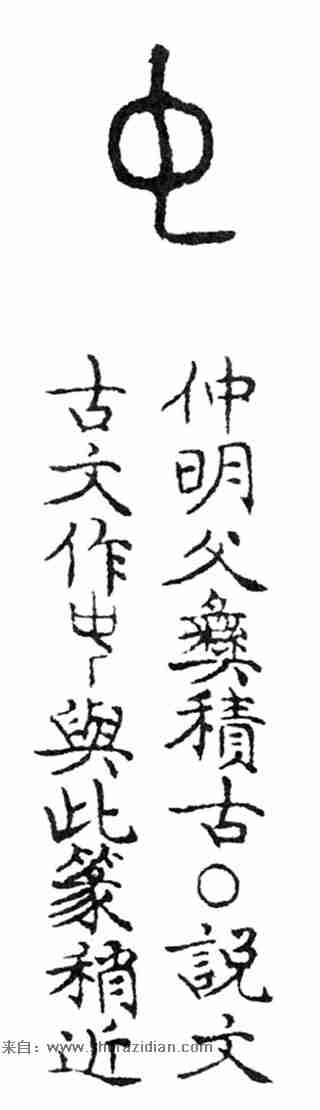 仲明父彝積古〇說文
古文作𠁧與此篆稍近
来自：www.shufazidian.com